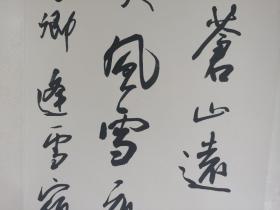 蒼山遠
風雪夜
卿逢雪宿